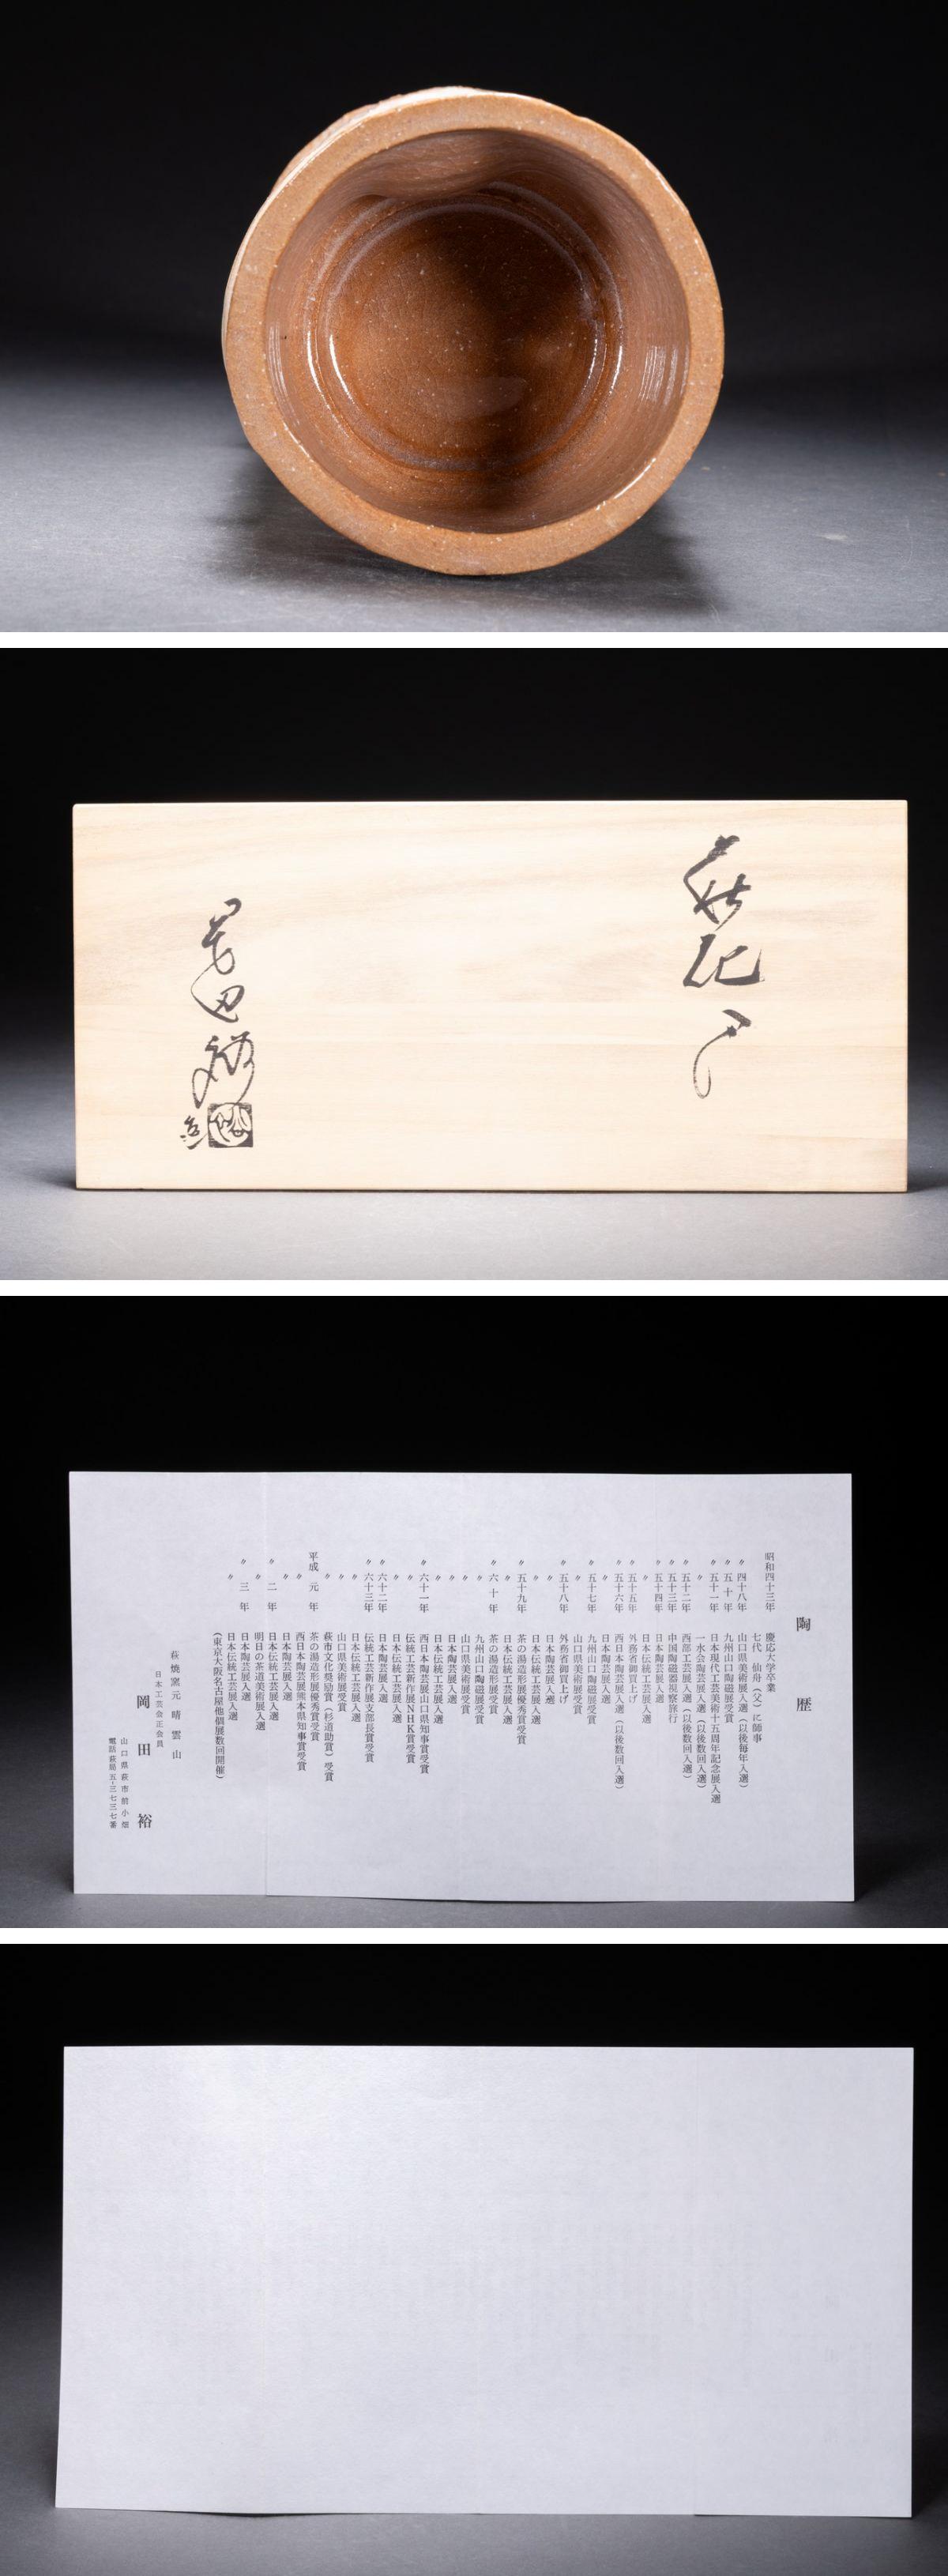 萩花入
岡田裕
造
陶歴
昭和四十三年 慶応大学卒業
七代 仙舟(父)に師事
〃四十八年 山口県美術展入選(以後毎年入選)
〃五十年 九州山口陶磁展受賞
〃五十一年 日本現代工芸美術十五周年記念展入選
〃 一水会陶芸展入選(以後数回入選)
〃五十二年 西部工芸展入選(以後数回入選)
〃五十三年 中国陶磁器視察旅行
〃五十四年 日本陶芸展入選
〃五十五年 外務省御買上げ
〃 日本伝統工芸展入選
〃五十六年 西日本陶芸展入選(以後数回入選)
〃 日本陶芸展入選
〃五十七年 九州山口陶磁展受賞
〃 山口県美術展受賞
〃五十八年 外務省御買上げ
〃 日本陶芸展入選
〃 日本伝統工芸展入選
〃五十九年 茶の湯造形展優秀賞受賞
〃 日本伝統工芸展入選
〃六十年 茶の湯造形展受賞
〃 九州山口陶磁展受賞
〃 山口県美術展受賞
〃 日本陶芸展入選
〃 日本伝統工芸展入選
〃六十一年 西日本陶芸展山口県知事賞受賞
〃 伝統工芸新作展NHK賞受賞
〃 日本伝統工芸展入選
〃六十二年 日本陶芸展入選
〃六十三年 伝統工芸新作展支部長賞受賞
〃 日本伝統工芸展入選
〃 山口県美術展受賞
〃 萩市文化奨励賞(杉道助賞)受賞
平成元年 茶の湯造形展優秀賞受賞
〃 西日本陶芸展熊本県知事賞受賞
〃 日本陶芸展入選
〃二年 日本伝統工芸展入選
〃 明日の茶道美術展入選
〃三年 日本陶芸展入選
〃 日本伝統工芸展入選
(東京大阪名古屋他個展数回開催)
萩焼窯元 晴雲山
日本工芸会正会員
岡田裕
山口県萩市前小畑
電話萩局五-三七三七番